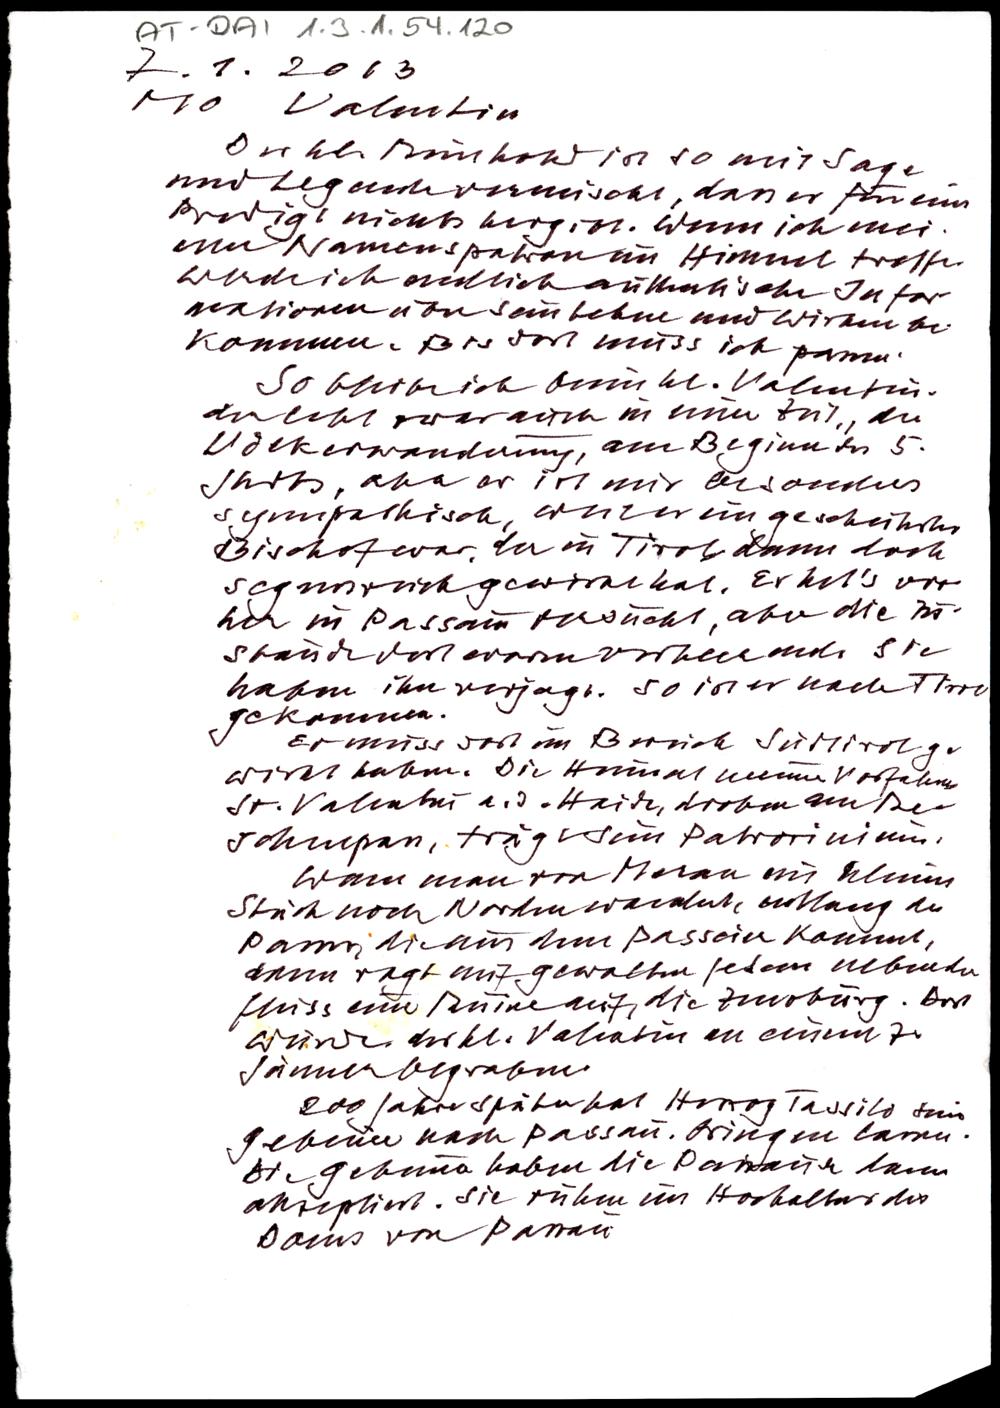 AT-DAI 1.3.1.54.120
7.1.2013
MO Valentin
Der hl. Reinhold ist so mit Sage
und Legende vermischt, dass er für eine
Predigt nichts hergibt. Wenn ich mei-
nen Namenspatron im Himmel treffe
werde ich endlich authentische Infor-
mationen über sein Leben und Wirken be-
kommen. Bis dort muss ich passen.
So bleibe ich beim hl. Valentin.
der lebt zwar auch in einer Zeit, der
Völkerwanderung, am Beginn des 5.
Jhrts, aber er ist mir besonders
sympathisch, weil er ein gescheiterter
Bischof war, der in Tirol dann doch
segensreich gewirkt hat. Er hat's vor-
her in Passau versucht, aber die Zu-
stände dort waren verheerend. Sie
haben ihn verjagt. So ist er nach Tirol
gekommen.
Er muss dort im Bereich Südtirol ge-
wirkt haben. Die Heimat meiner Vorfahren
St. Valentin a. d. Haide, droben am Re-
schenpass, trägt sein Patrozinium.
Wenn man von Meran ein kleines
Stück nach Norden wandert, entlang der
Passer, die aus dem Passeier kommt,
dann ragt auf gewaltigem Felsen neben dem
Fluss eine Ruine auf, die Zenoburg. Dort
wurde der hl. Valentin an einem 7.
Jänner begraben.
200 Jahre später hat Herzog Tassilo seine
Gebeine nach Passau bringen lassen.
Die Gebeine haben die Passauer dann
akzeptiert. Sie ruhen im Hochaltar des
Doms von Passau